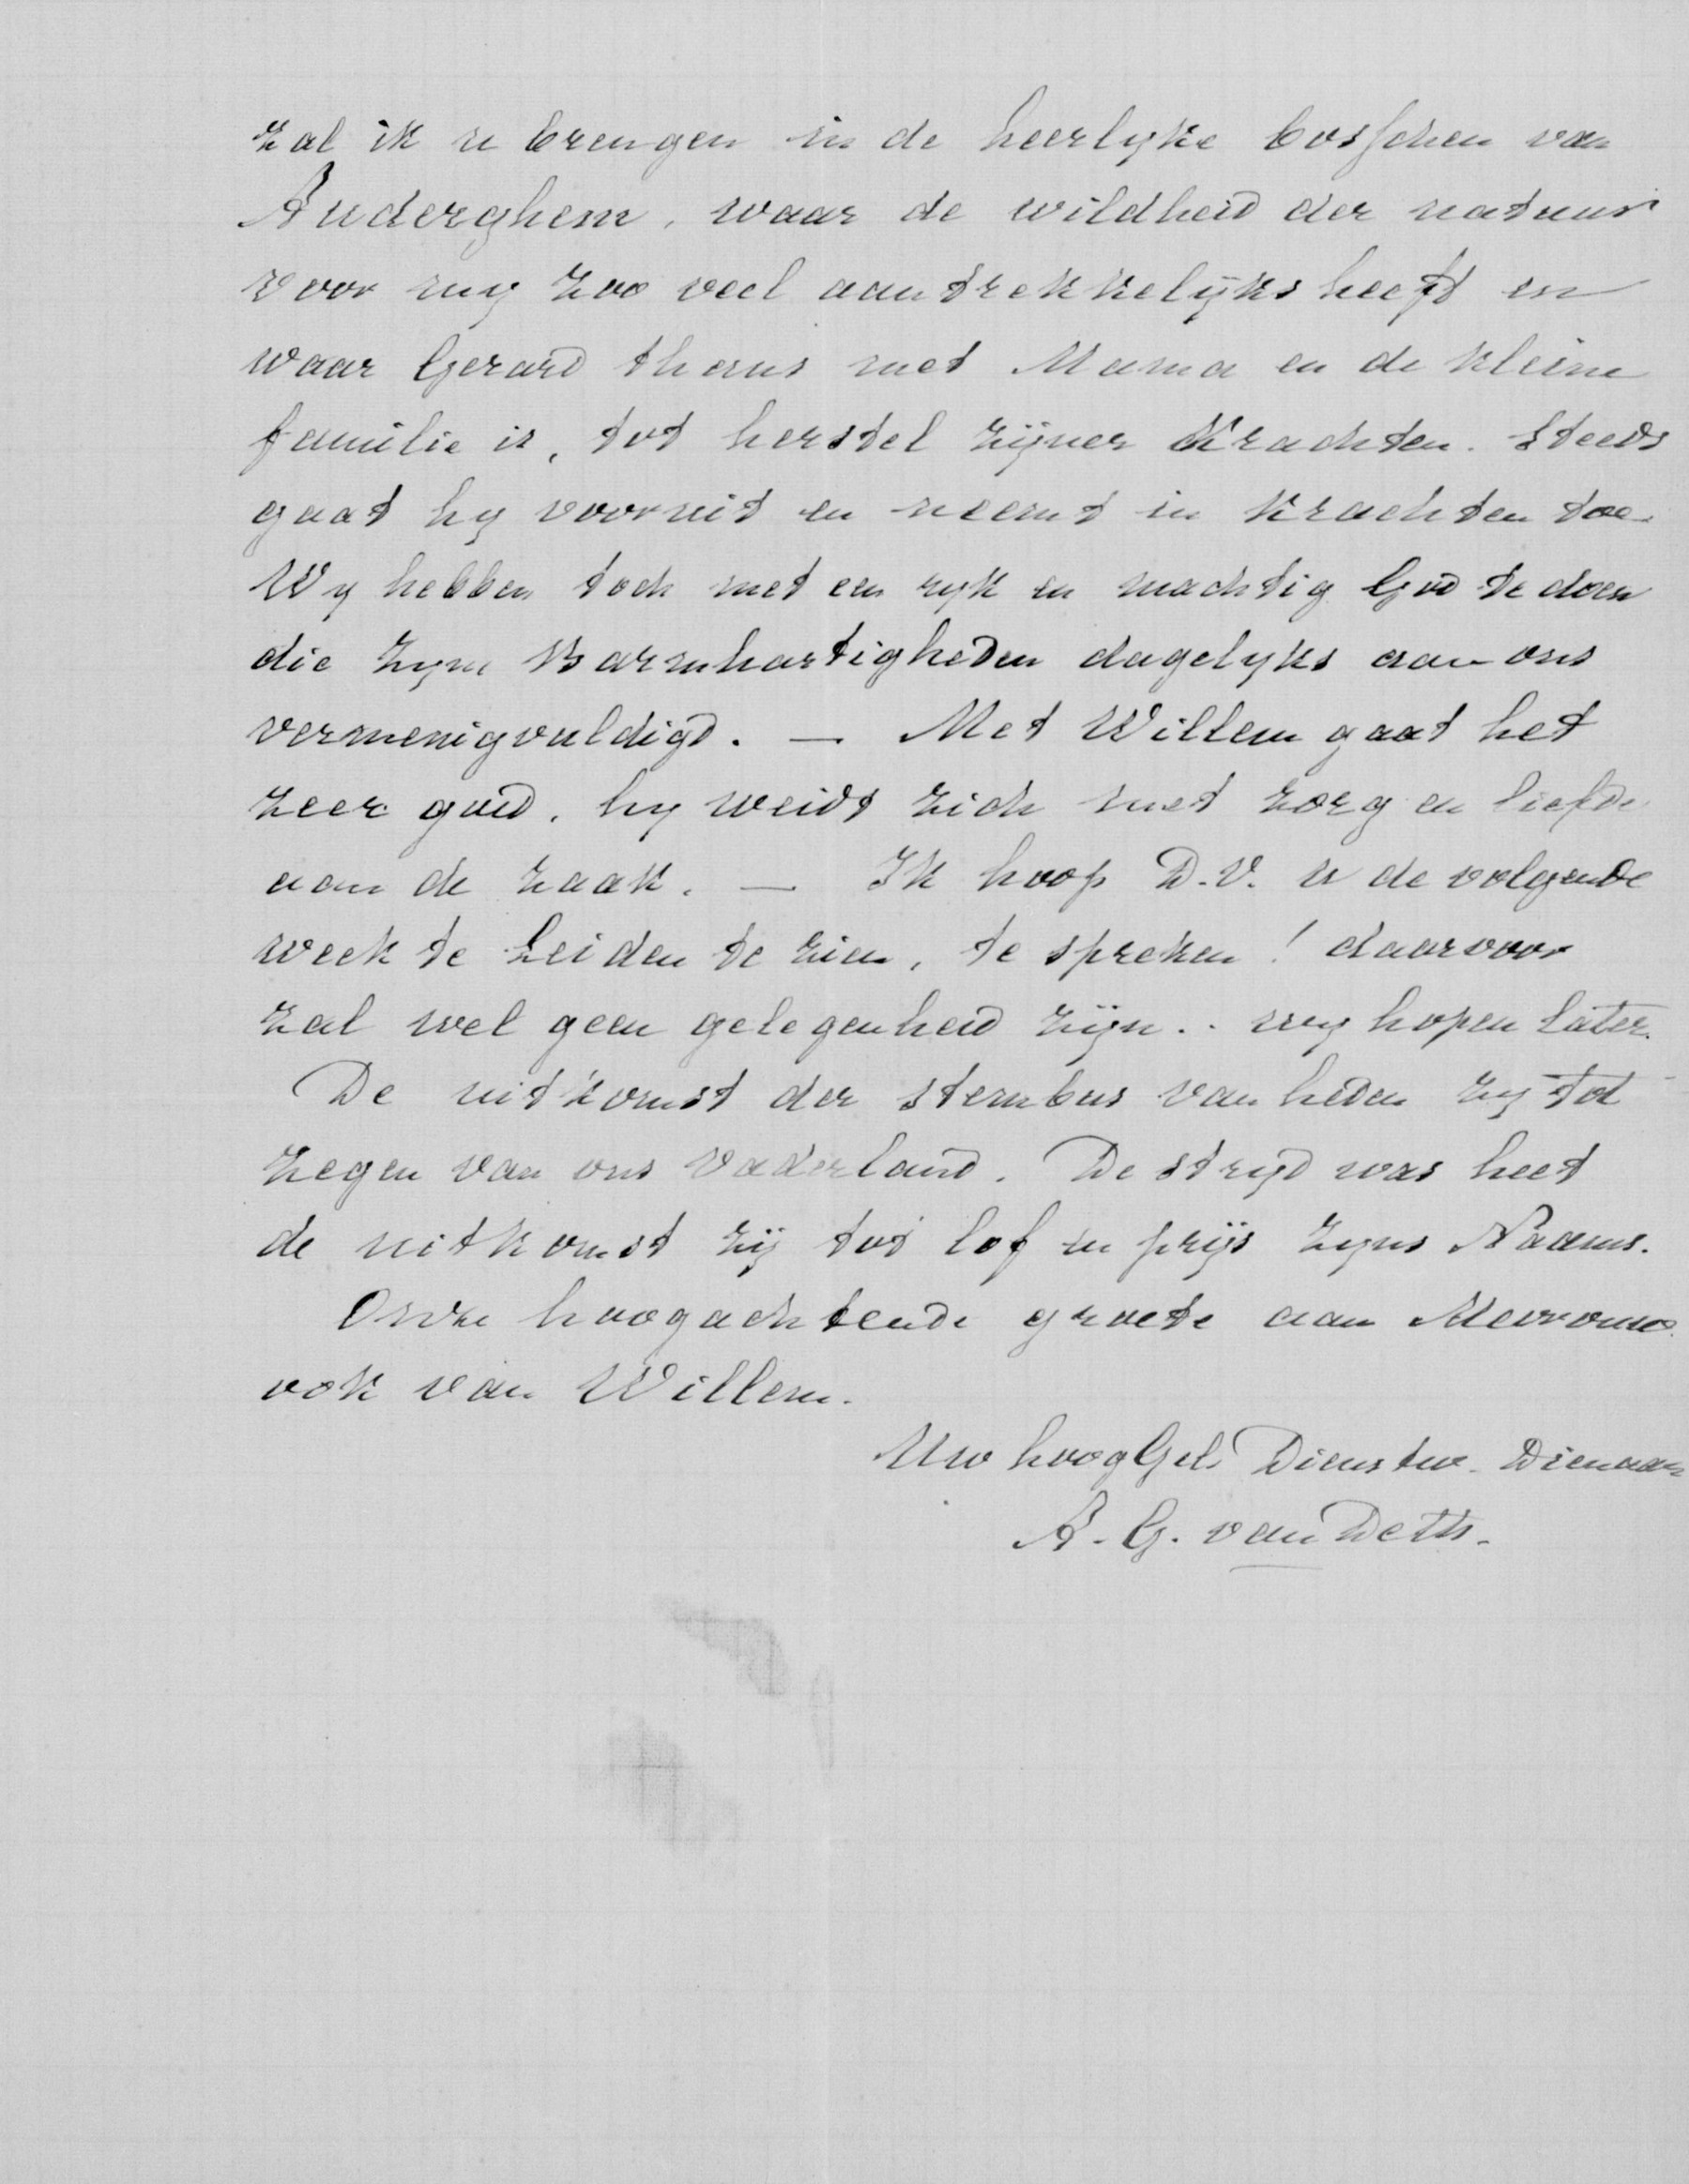 zal ik u brengen in de heerlyke bosschen van
Auderghem, waar de wildheid der natuur
voor my zoo veel aantrekkelijks heeft en
waar Gerard thans met Mama en de kleine
familie is, tot herstel zijner krachten. Steeds
gaat hy vooruit en neemt in krachten toe.
Wy hebben toch met een ryk en machtig God te doen
die zyne Barmhartigheden dagelyks aan ons
vermenigvuldigt. — Met Willem gaat het
zeer goed, hy weidt zich met zorg en liefde
aan de zaak. — Ik hoop D.V. u de volgende
week te Leiden te zien, te spreken! daarvoor
zal wel geen gelegenheid zijn.. wy hopen later.
De uitkomst der stembus van heden zy tot
zegen van ons Vaderland. De stryd was heet
de uitkomst zij tot lof en prijs Zyns Naams.
Onze hoogachtende groete aan Mevrouw
ook van Willem.
Uw hoogGel. Dienstw. Dienaar
A. G. van Deth.